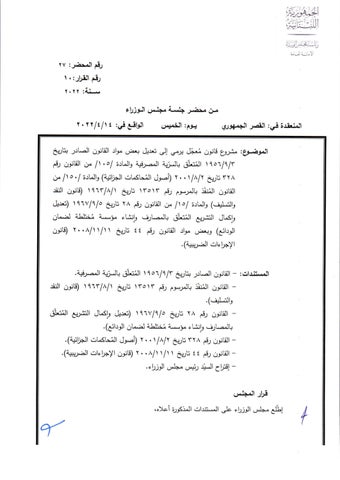 الجمهورية
اللبنانية
رقم المحضر: ٢٧
رقم القرار: ١٠
سنة: ٢٠٢٢
من محضر جلسة مجلس الوزراء
المنعقدة في: القصر الجمهوري يوم: الخميس الواقع في: ٢٠٢٢/٤/١٤
الموضوع: مشروع قانون مُعجّل يرمي إلى تعديل بعض مواد القانون الصادر بتاريخ
١٩٥٦/٩/٣ المتعلّق بالسرّية المصرفية والمادة /١٥٠/ من القانون رقم
٣٢٨ تاريخ ٢٠٠١/٨/٢ (أصول المُحاكمات الجزائية) والمادة /١٥٠/ من
القانون المُنفّذ بالمرسوم رقم ١٣٥١٣ تاريخ ١٩٦٣/٨/١ (قانون النقد
والتسليف) والمادة /١٥/ من القانون رقم ٢٨ تاريخ ١٩٦٧/٩/٥ (تعديل
وإكمال التشريع المُتعلّق بالمصارف وإنشاء مؤسسة مُختلطة لضمان
الودائع) وبعض مواد القانون رقم ٤٤ تاريخ ٢٠٠٨/١١/١١ (قانون
الإجراءات الضريبية).
المستندات: - القانون الصادر بتاريخ ١٩٥٦/٩/٣ المُتعلّق بالسرّية المصرفية.
- القانون المُنفّذ بالمرسوم رقم ١٣٥١٣ تاريخ ١٩٦٣/٨/١ (قانون النقد
والتسليف).
- القانون رقم ٢٨ تاريخ ١٩٦٧/٩/٥ (تعديل وإكمال التشريع المُتعلّق
بالمصارف وإنشاء مؤسسة مُختلطة لضمان الودائع).
- القانون رقم ٣٢٨ تاريخ ٢٠٠١/٨/٢ (أصول المُحاكمات الجزائية).
- القانون رقم ٤٤ تاريخ ٢٠٠٨/١١/١١ (قانون الإجراءات الضريبية).
- إقتراح السيّد رئيس مجلس الوزراء.
قرار المجلس
إطّلع مجلس الوزراء على المستندات المذكورة أعلاه،